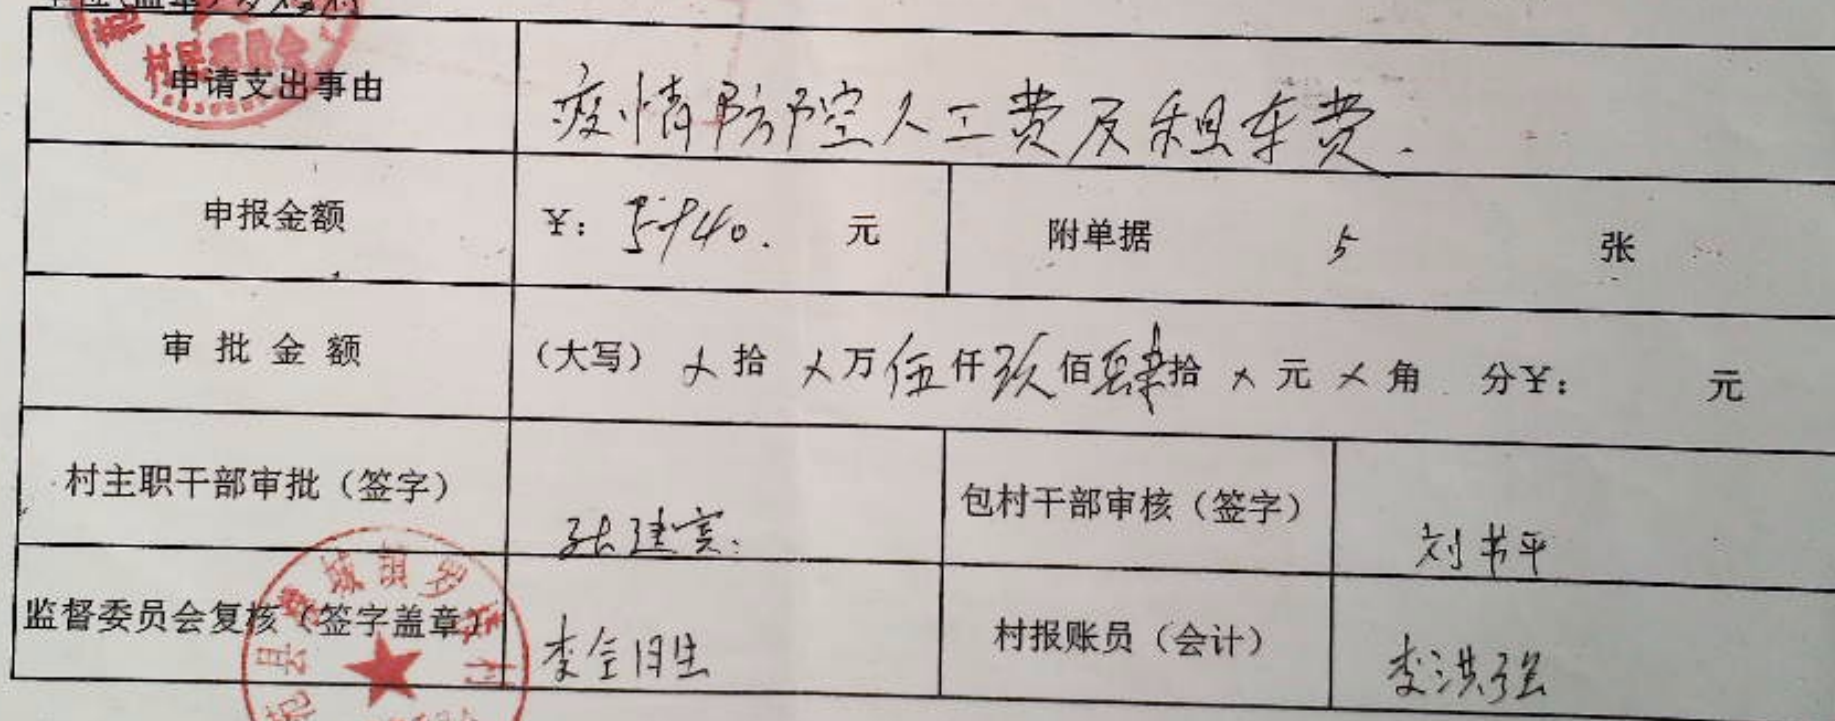 单位(盖章)
村民委员会
申请支出事由 疫情防控人工费及租车费.
申报金额 ¥: 5940. 元 附单据 5 张
审批金额 (大写) 乂拾 乂万伍仟玖佰肆拾 乂元 乂角 分¥: 元
村主职干部审批(签字) 张建宾. 包村干部审核(签字) 刘书平
监督委员会复核(签字盖章) 李全胜 村报账员(会计) 李洪强
县 城镇 村